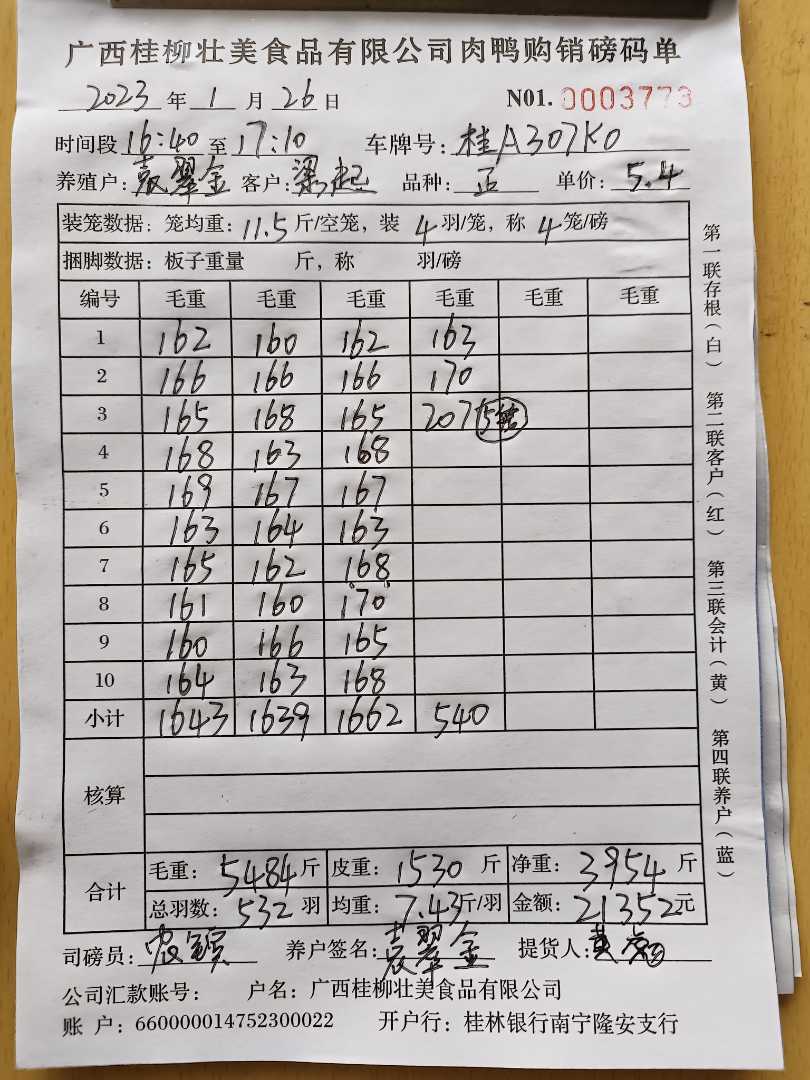 广西桂柳壮美食品有限公司肉鸭购销磅码单
2023 年 1 月 26 日 N01. 0003773
时间段 16:40 至 17:10 车牌号: 桂A307K0
养殖户: 袁翠金 客户: 梁起 品种: 正 单价: 5.4
装笼数据: 笼均重: 11.5 斤/空笼, 装 4 羽/笼, 称 4 笼/磅
捆脚数据: 板子重量 斤, 称 羽/磅
编号 毛重 毛重 毛重 毛重 毛重 毛重
1 162 160 162 163
2 166 166 166 170
3 165 168 165 207 5笼
4 168 163 168
5 169 167 167
6 163 164 163
7 165 162 168
8 161 160 170
9 160 166 165
10 164 163 168
小计 1643 1639 1662 540
核算
合计 毛重: 5484 斤 皮重: 1530 斤 净重: 3954 斤
总羽数: 532 羽 均重: 7.43 斤/羽 金额: 21352 元
司磅员: 养户签名: 袁翠金 提货人: 黄
公司汇款账号: 户名: 广西桂柳壮美食品有限公司
账 户: 660000014752300022 开户行: 桂林银行南宁隆安支行
第一联存根(白) 第二联客户(红) 第三联会计(黄) 第四联养户(蓝)